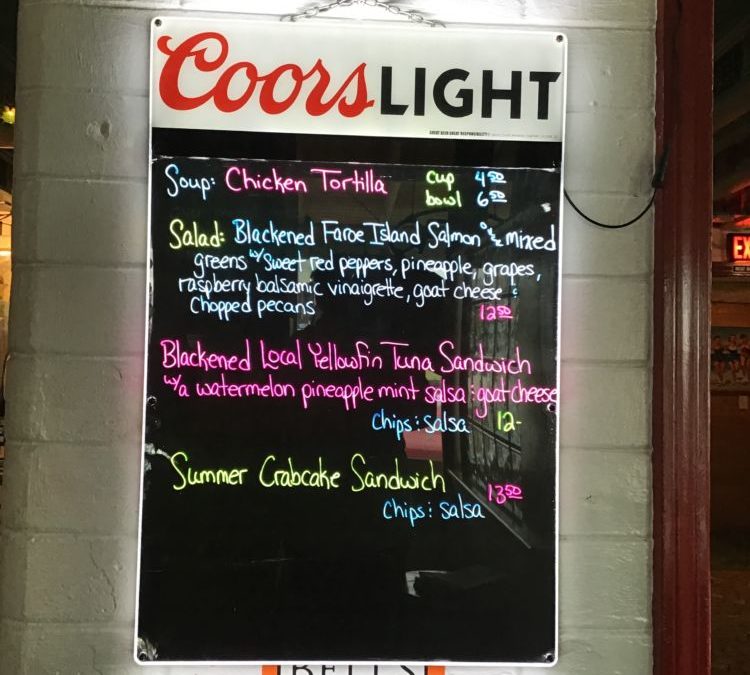 Coors LIGHT
GREAT BEER GREAT RESPONSIBILITY
Soup: Chicken Tortilla cup 4.50
bowl 6.50
Salad: Blackened Faroe Island Salmon o/ mixed
greens w/ sweet red peppers, pineapple, grapes,
raspberry balsamic vinaigrette, goat cheese &
Chopped pecans 12.50
Blackened Local Yellowfin Tuna Sandwich
w/ a watermelon pineapple mint salsa & goat cheese
Chips & Salsa 12-
Summer Crabcake Sandwich 13.50
Chips & Salsa
EX
BELL'S